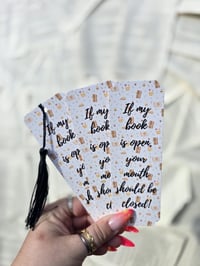 If my
book
is open,
your
mouth
should be
closed!
If my
book
is op
y
m
sh
If my
book
is op
yo
mo
sho
c